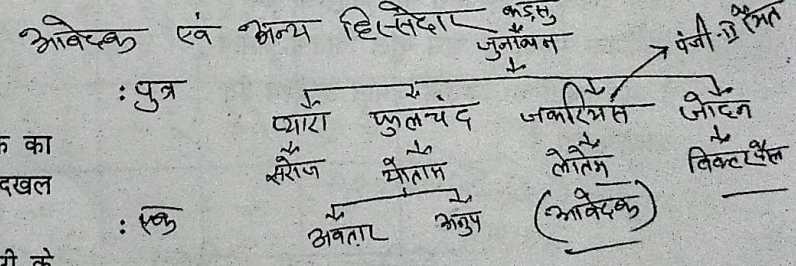 आवेदक एवं अन्य हिस्सेदार कड़सु
जुनॉवन → पंजी-II रैयत
: पुत्र
प्यारा फुलचंद जकरियस जोहन
क का
सरोज योताम लोतेम विक्टर पौल
दखल
: एक
अवतार अनुप (आवेदक)
री के